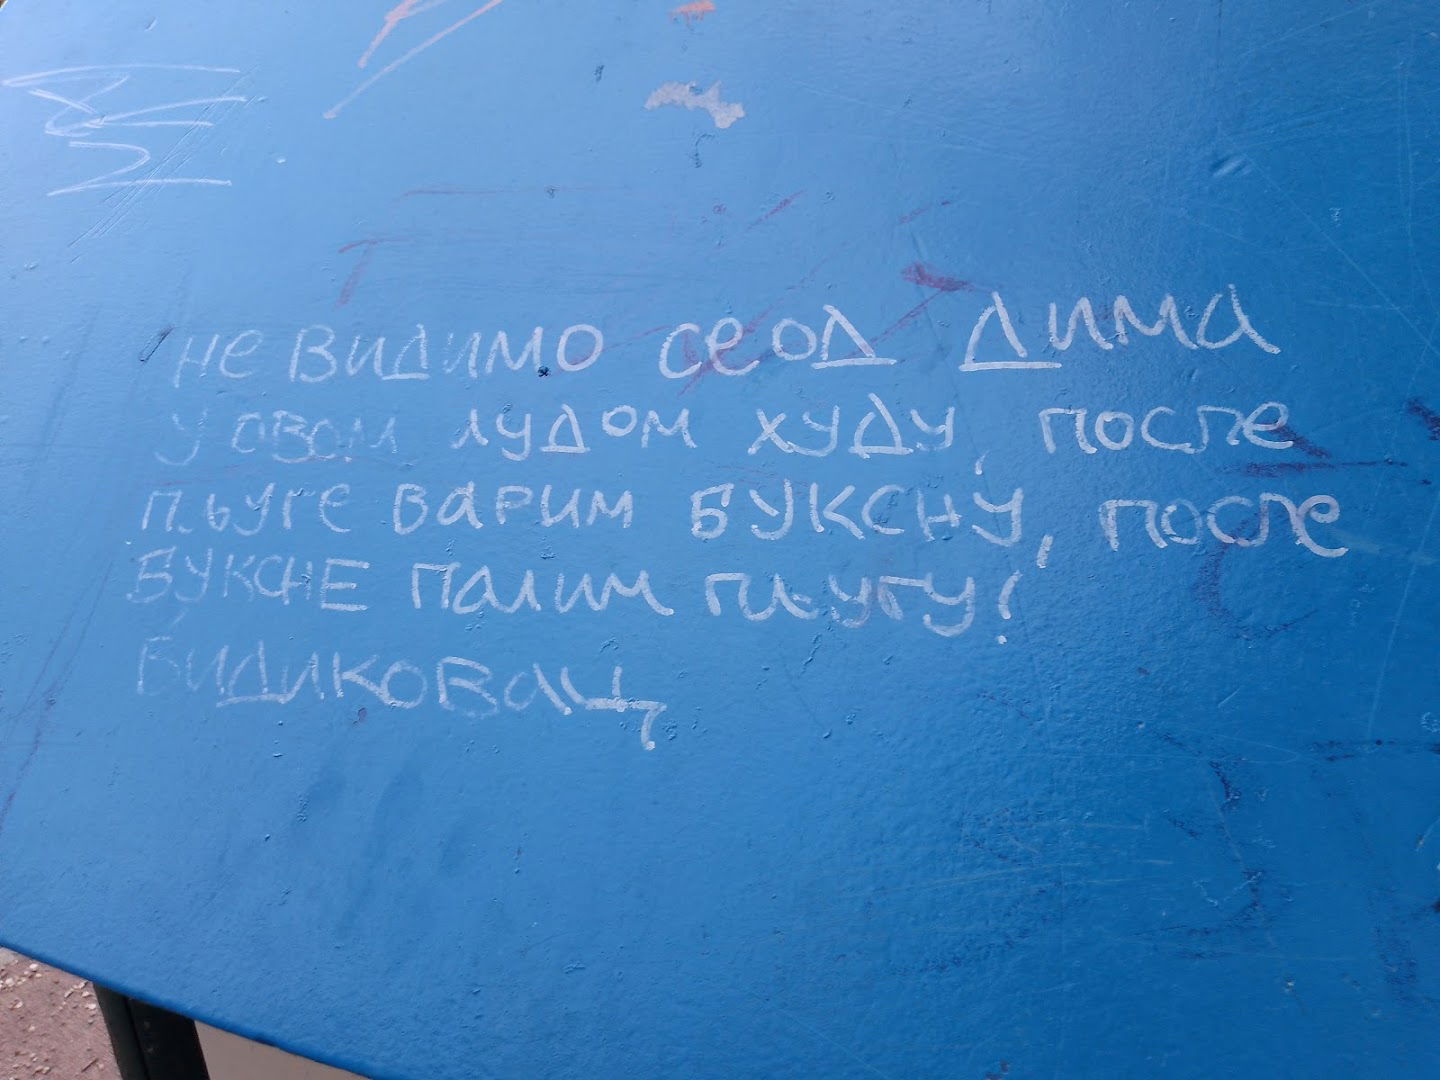 не видимо се од дима
у овом лудом худу, после
пљуге варим буксну, после
буксне палим пљугу!
Видиковац